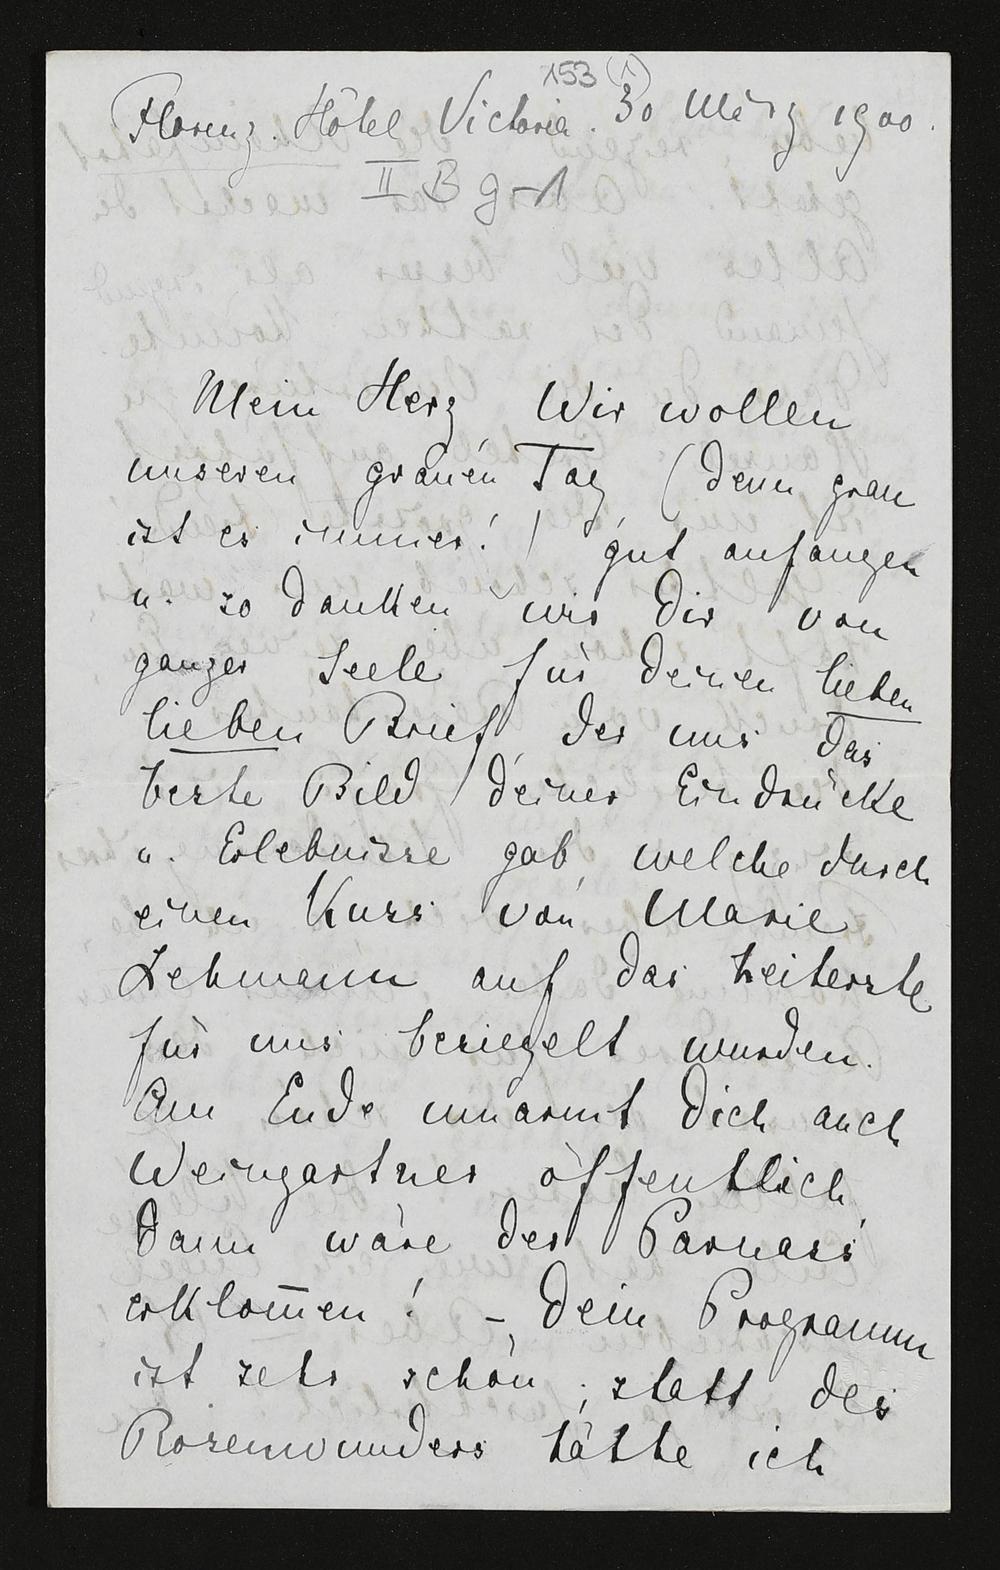 153 (1)
Florenz. Hôtel Victoria. 30 März 1900.
II B g-1
Mein Herz Wir wollen
unseren grauen Tag (denn grau
ist es immer!) gut anfangen
u. so danken wir Dir von
ganzer Seele für Deinen lieben
lieben Brief, der uns das
beste Bild Deiner Eindrücke
u. Erlebnisse gab, welche durch
einen Kuss von Marie
Lehmann auf das heiterste
für uns besiegelt wurden.
Am Ende umarmt Dich auch
Weingartner öffentlich,
dann wäre der Parnass
erklom̅en! – Dein Programm
ist sehr schön; statt des
Rosenwunders hätte ich